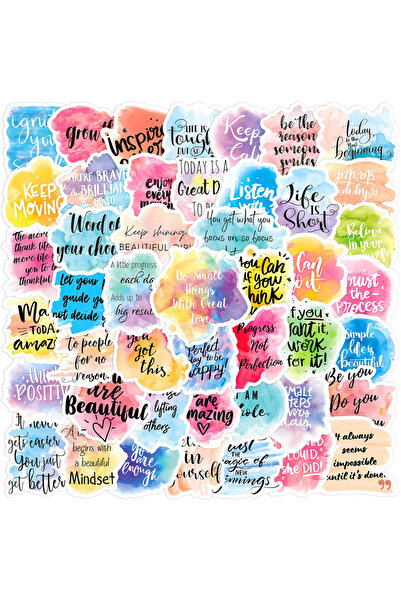 grow
inspire
LIFE IS
tough
BUT SO
Keep
be the
reason
someone
smiles
today
is the
beginning
KEEP
MOVING
YOU'RE BRAVE
& BRILLIANT
enjoy
every
TODAY IS A
Great D
TO BE
Listen
Life
is
SHORT
Believe
in your
The more
thank life
more life
you to be
thankful
Word of
your cho
Keep shining,
BEAUTIFUL GIRL
You get what you
focus on so focus
Let your
guide yo
not decide
A little progress
each da
Adds up to
big resul
Do Small
Things
With Great
Love
You
Can if
you
THINK
I Can
Do it
trust
the
PROCESS
Ma
TODA
amazi
To people
for no
reason.
you
got
this.
Perfect
day to be
happy!
Progress
Not
Perfection
if you
want it,
work
for it!
Simple
life is
beautiful
THINK
POSITIV
are
Beautiful
lifting
others
are
amazing
I AM
whole.
small
steps
every
day
Be you
Do you
It never
gets easier
You just
get better
begins with
a beautiful
Mindset
you
are
enough
it in
yourself
trust the
magic of
NEW
COULD,
she DID!
It always
seems
impossible
until it's
done.